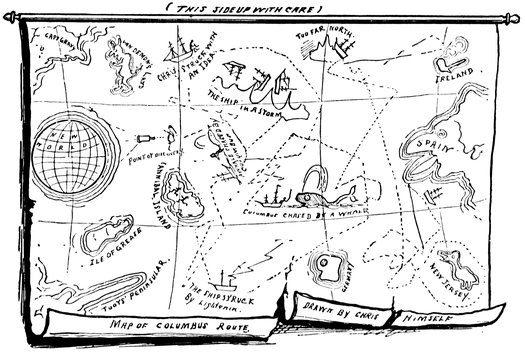 (THIS SIDE UP WITH CARE)
CAPE GRAY
CHRIS. STRUCK WITH
AN IDEA
TOO FAR NORTH
IRELAND
THE SHIP IN A STORM
NEW
WORLD
POINT OF DISCOVERY
SPAIN
ISLAND
COLUMBUS CHASED BE A WHALE
ILE OF GREASE
TOOTS PENINSULAR
THE SHIP STRUCK
By Ligtenin.
GERMANY
NEW JERSEY
MAP OF COLUMBUS ROUTE
DRAWN BY CHRIS
HIMSELF